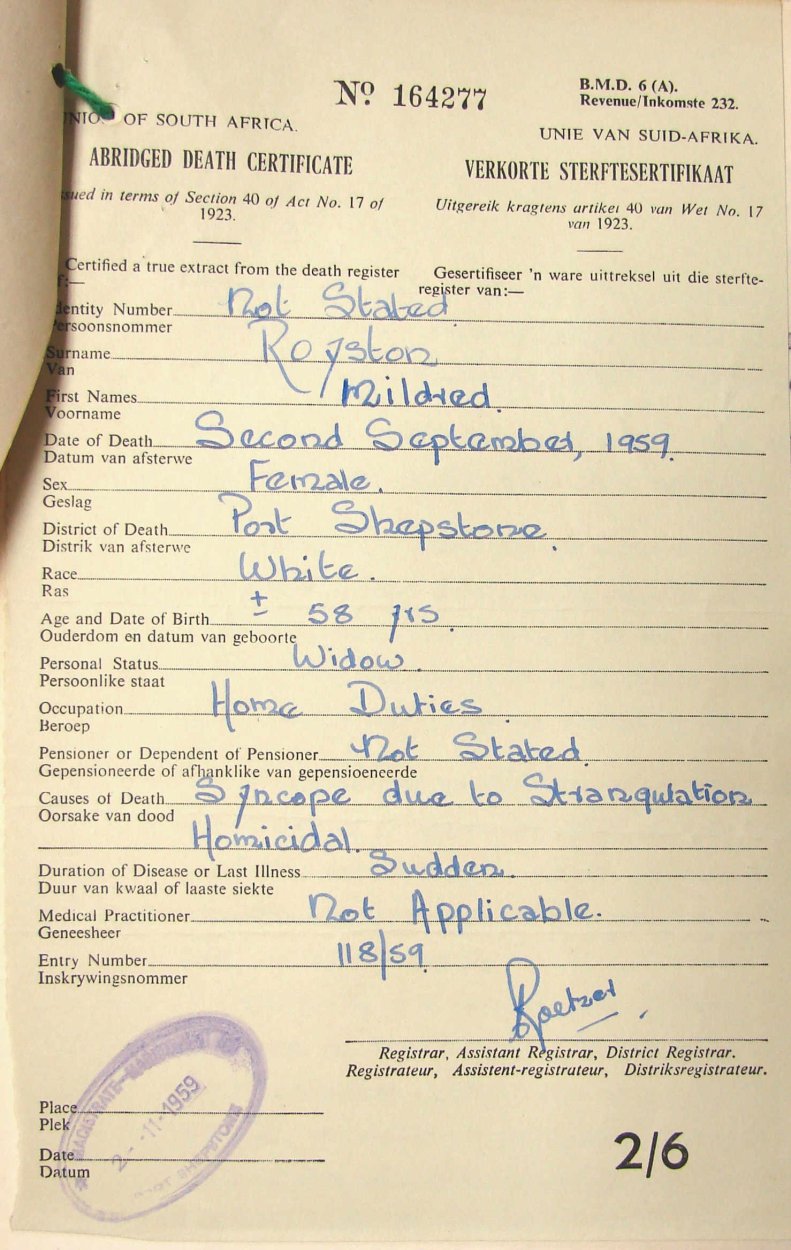 No 164277
B.M.D. 6 (A).
Revenue/Inkomste 232.
OF SOUTH AFRICA.
UNIE VAN SUID-AFRIKA.
ABRIDGED DEATH CERTIFICATE
VERKORTE STERFTESERTIFIKAAT
sued in terms of Section 40 of Act No. 17 of
1923.
Uitgereik kragtens artikel 40 van Wet No. 17
van 1923.
Certified a true extract from the death register
f:—
Gesertifiseer 'n ware uittreksel uit die sterfte-
register van:—
dentity Number Not Stated
ersoonsnommer
Surname Royston
Van
First Names Mildred.
Voorname
Date of Death Second September, 1959.
Datum van afsterwe
Sex Female.
Geslag
District of Death Port Shepstone.
Distrik van afsterwe
Race White.
Ras
Age and Date of Birth ± 58 yrs.
Ouderdom en datum van geboorte
Personal Status Widow.
Persoonlike staat
Occupation Home Duties
Beroep
Pensioner or Dependent of Pensioner Not Stated.
Gepensioneerde of afhanklike van gepensioeneerde
Causes of Death Syncope due to Strangulation
Oorsake van dood
Homicidal.
Duration of Disease or Last Illness Sudden.
Duur van kwaal of laaste siekte
Medical Practitioner Not Applicable.
Geneesheer
Entry Number 118/59
Inskrywingsnommer
Registrar, Assistant Registrar, District Registrar.
Registrateur, Assistent-registrateur, Distriksregistrateur.
Place
Plek
Date
Datum
MAGISTRATE
2-11-1959
2/6